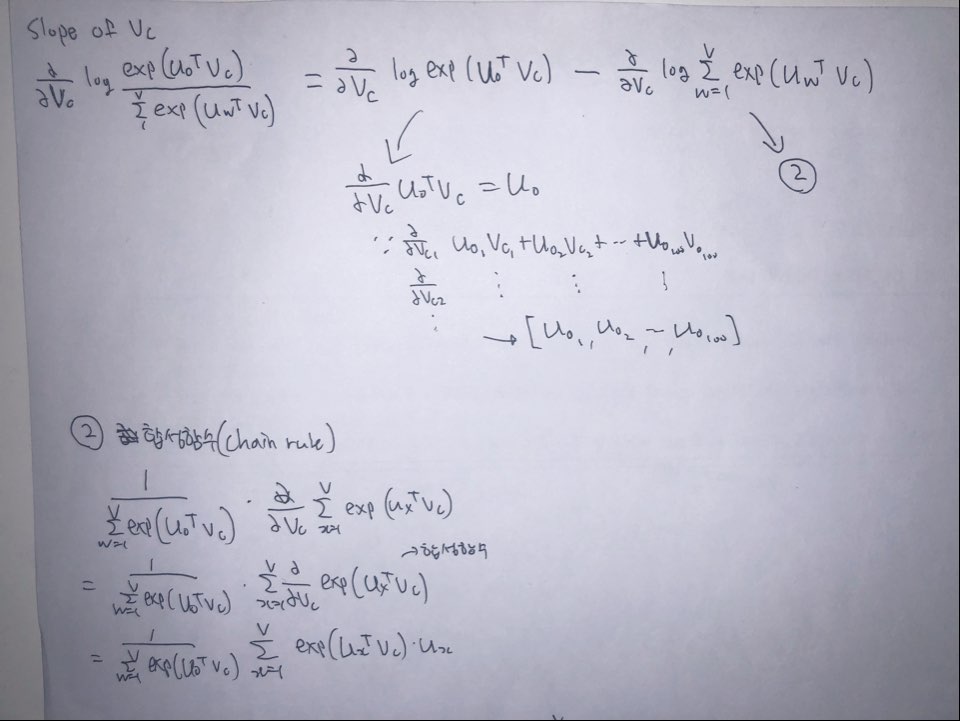 Slope of Vc
∂/∂Vc log exp(Uo^T Vc) / Σ_1^V exp(Uw^T Vc) = ∂/∂Vc log exp(Uo^T Vc) − ∂/∂Vc log Σ_{w=1}^V exp(Uw^T Vc)
∂/∂Vc Uo^T Vc = Uo
②
∵ ∂/∂Vc1 Uo1 Vc1 + Uo2 Vc2 + ⋯ + Uo100 Vo100
∂/∂Vc2 ⋮ ⋮ ⋮
⋮ → [Uo1, Uo2, ~, Uo100]
② 합성함수(chain rule)
1 / Σ_{w=1}^V exp(Uo^T Vc) · ∂/∂Vc Σ_{x=1}^V exp(Ux^T Vc)
→합성함수
= 1 / Σ_{w=1}^V exp(Uo^T Vc) · Σ_{x=1}^V ∂/∂Vc exp(Ux^T Vc)
= 1 / Σ_{w=1}^V exp(Uo^T Vc) Σ_{x=1}^V exp(Ux^T Vc) · Ux